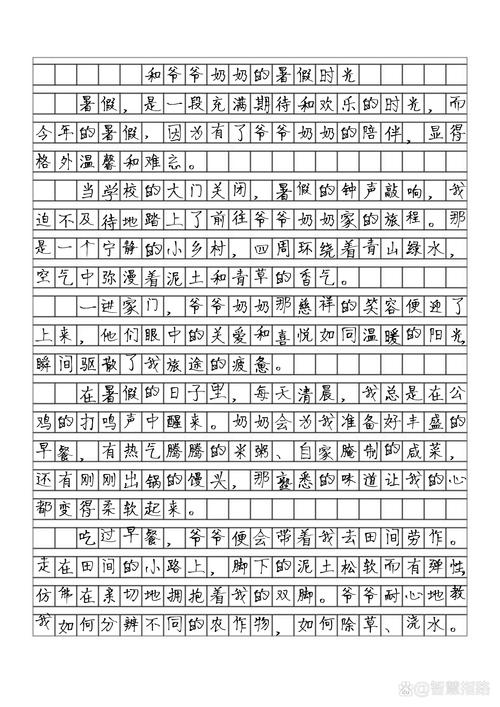 和爷爷奶奶的暑假时光
暑假，是一段充满期待和欢乐的时光，而
今年的暑假，因为有了爷爷奶奶的陪伴，显得
格外温馨和难忘。
当学校的大门关闭，暑假的钟声敲响，我
迫不及待地踏上了前往爷爷奶奶家的旅程。那
是一个宁静的小乡村，四周环绕着青山绿水，
空气中弥漫着泥土和青草的香气。
一进家门，爷爷奶奶那慈祥的笑容便迎了
上来，他们眼中的关爱和喜悦如同温暖的阳光，
瞬间驱散了我旅途的疲惫。
在暑假的日子里，每天清晨，我总是在公
鸡的打鸣声中醒来。奶奶会为我准备好丰盛的
早餐，有热气腾腾的米粥、自家腌制的咸菜，
还有刚刚出锅的馒头，那熟悉的味道让我的心
都变得柔软起来。
吃过早餐，爷爷便会带着我去田间劳作。
走在田间的小路上，脚下的泥土松软而有弹性，
仿佛在亲切地拥抱着我的双脚。爷爷耐心地教
我如何分辨不同的农作物，如何除草、浇水。
智慧指路